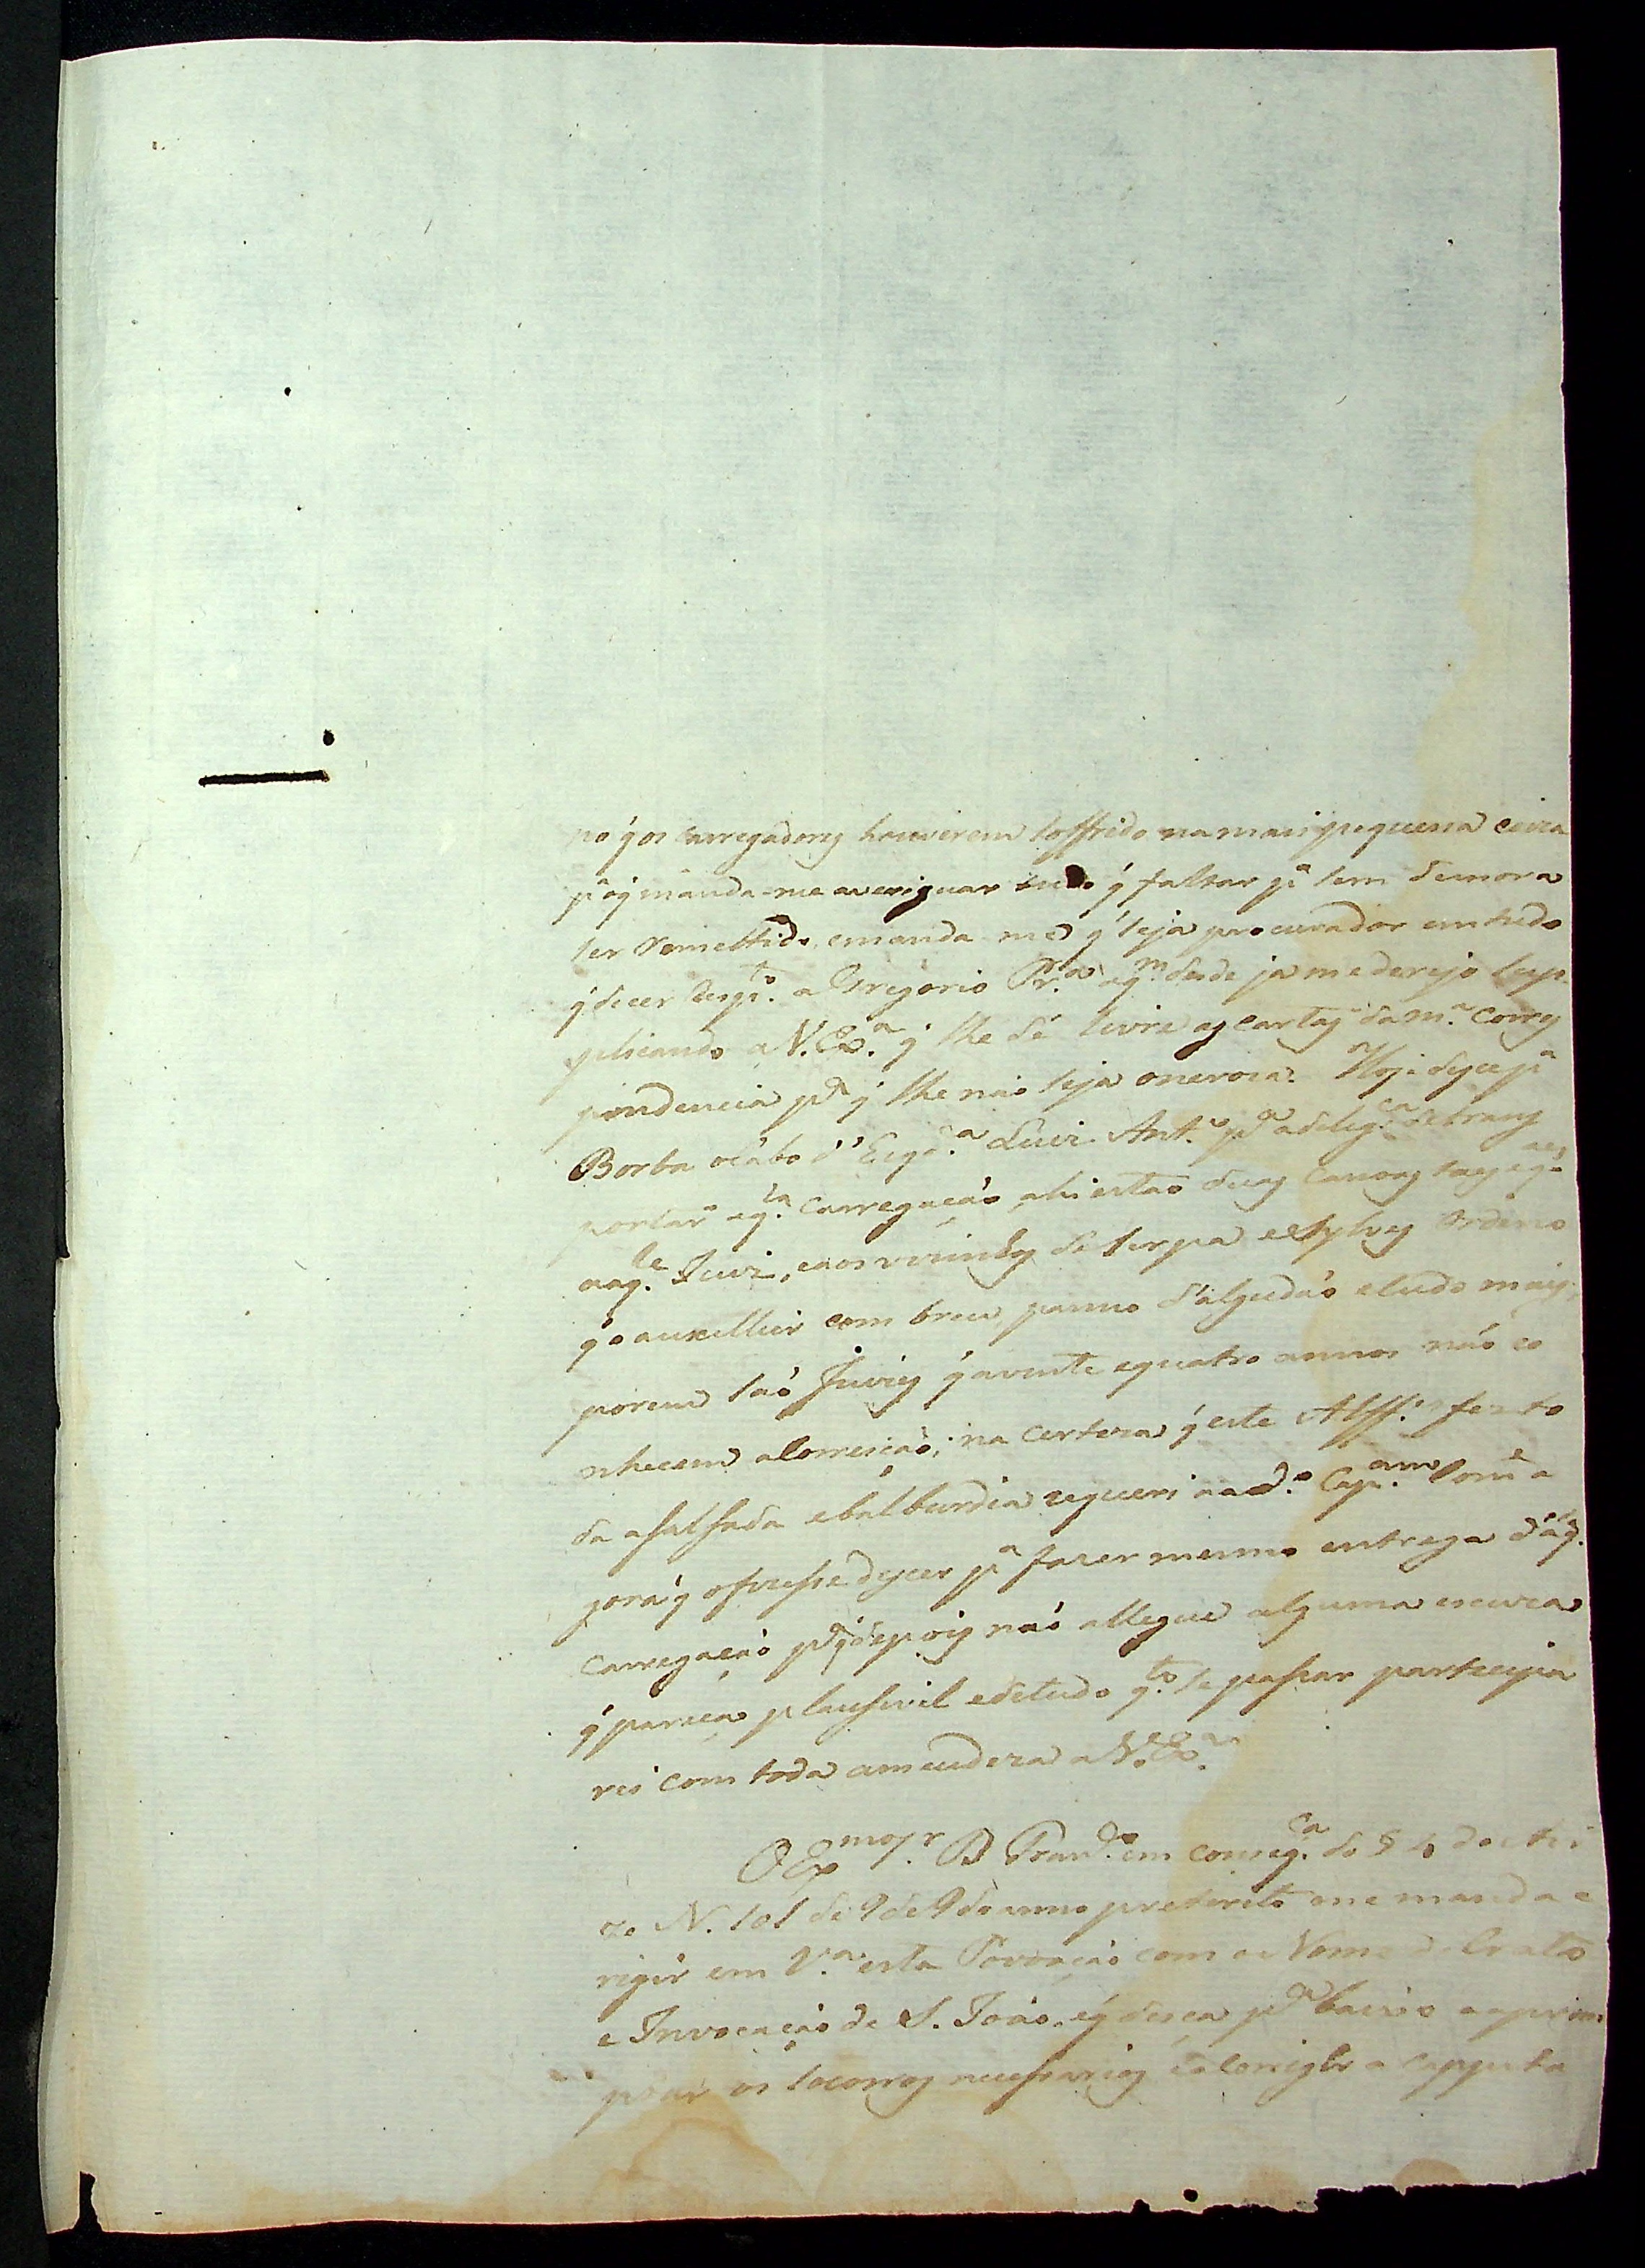 no q̃ os carregadores houverem soffrido na mais pequena coiza
pª o q̃ manda-me averiguar tudo q̃ faltar pª sem demora
ser remettido, e manda-me q̃ seja procurador em tudo
q̃ dicer respᵗᵒ. a Gregorio Pr.ª a q.ᵐ desde ja me derejo sup-
plicando a V. Ex.ª q̃ lhe dê livre as cartas da m.ª corres
pondencia pª q̃ lhe não seja oneroza. Hoje desce pª
Borba o Cabo d'Esqd.ª Luiz Ant.º pª a delig.ᶜᵃ de trans
portar aq.ˡᵃ carregação, ahi estão duas canoas
aaq.ˡᵉ Juiz, e aos vizinhos de Serpa e Sylves ordeno
q̃ o auxillier com breu, panno d'algudão e tudo mais,
porem são Juizes q̃ a vinte e quatro annos não co
nhecem a Correição; na certeza q̃ este Alff.
da a falsada e balburdia requeri a ad.º Cap.ᵃᵐ
gora q̃ o fizesse descer pª fazer mesmo entrega d'aq.ˡᵃ
carregação pª q̃ depois não allegue alguma escuza
q̃ pareça plausivil e de tudo q.ᵗᵒ se passar participa
rei com toda ameudeza a V. Ex.ª
O Ex.ᵐᵒ Sr. B Prezid.ᵉ em conseq.ᶜᵃ do § 4 do
N. 101 de 9 de 9 do anno preterito me manda e
rigir em V.ª esta Povoação com o Nome de Crato
e Invocação de S. João, e q̃ desça pª baixo a aprom
ptar os socorros necessarios